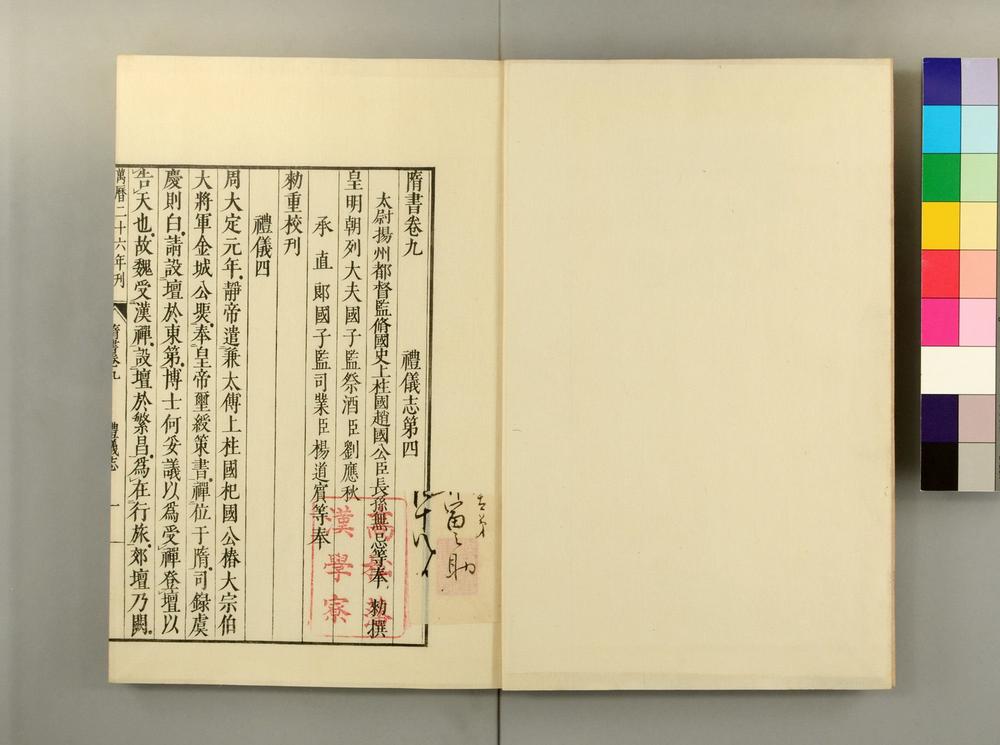 隋書卷九　禮儀志第四
太尉揚州都督監脩國史上柱國趙國公臣長孫無忌等奉　勑撰
皇明朝列大夫國子監祭酒臣劉應秋
承直郞國子監司業臣楊道賔等奉
勑重校刊
禮儀四
周大定元年靜帝遣兼太傅上柱國杞國公椿大宗伯
大將軍金城公煚奉皇帝璽綬策書禪位于隋司録虞
慶則白請設壇於東第博士何妥議以爲受禪登壇以
告天也故魏受漢禪設壇於繁昌爲在行旅郊壇乃闕
萬曆二十六年刊
隋書卷九　禮儀志　一
漢學寮
寅之助